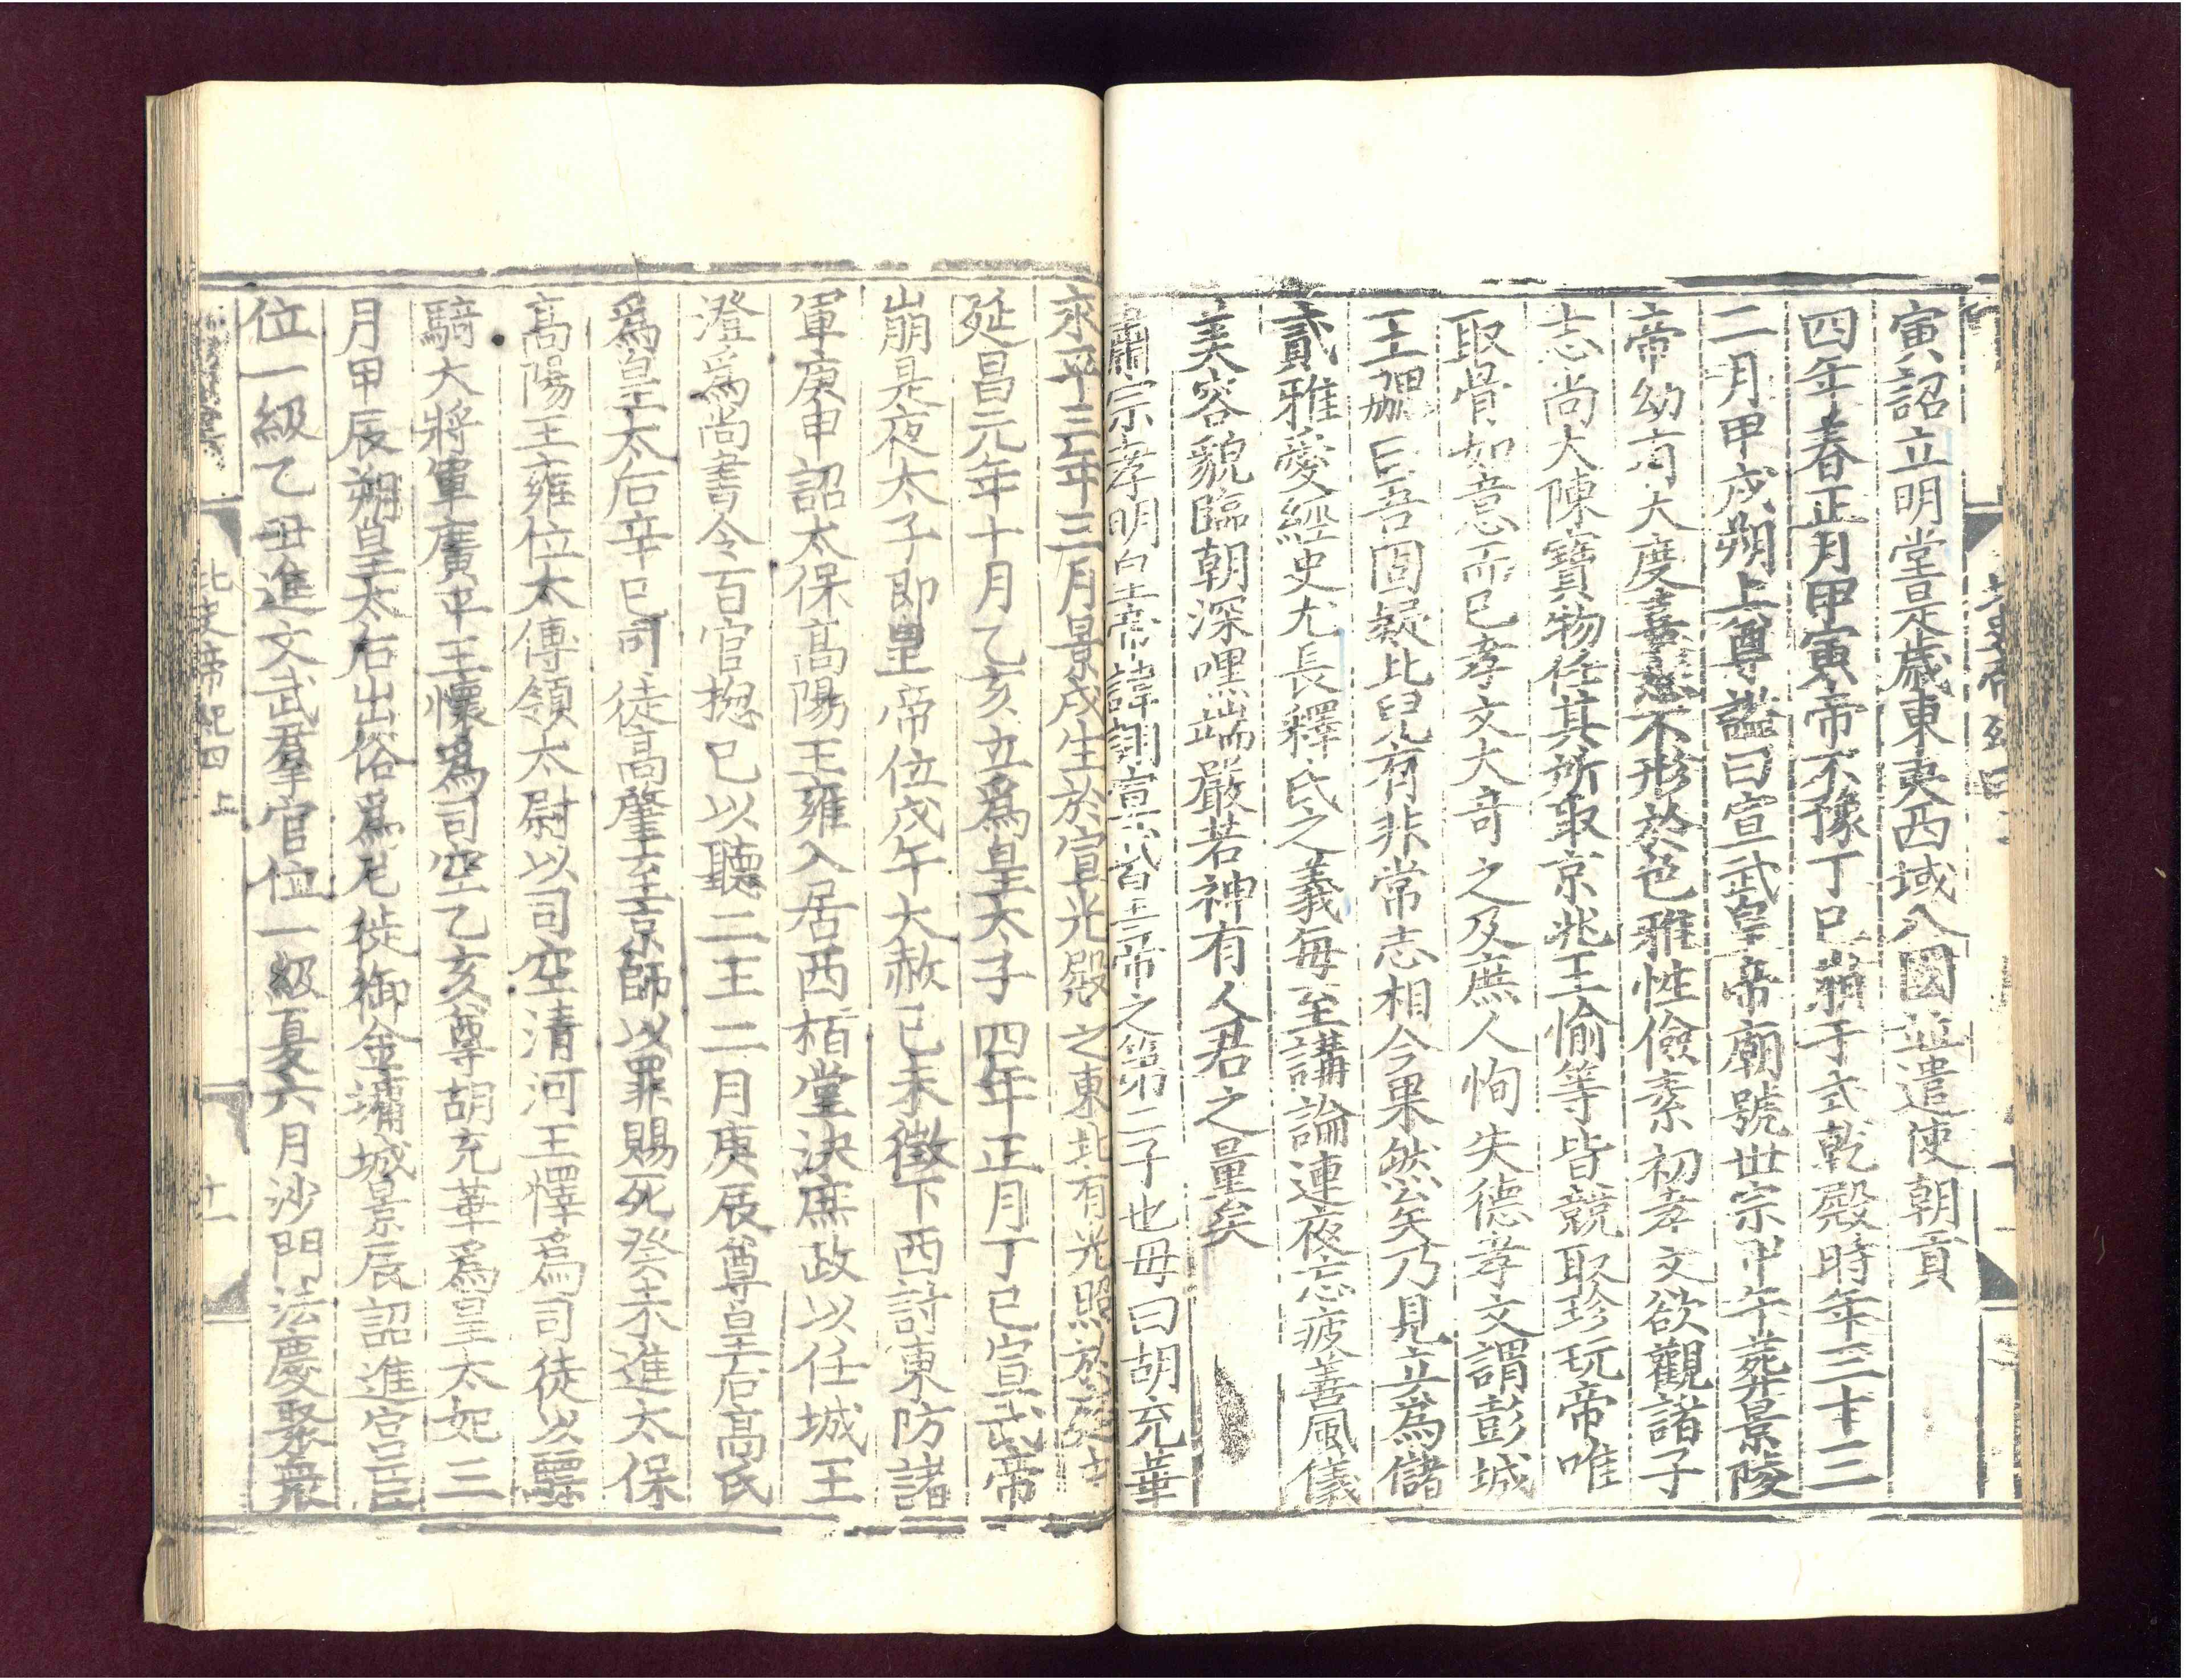 寅詔立明堂是歲東夷西域八國並遣使朝貢
四年春正月甲寅帝不豫丁巳崩于式乾殿時年三十三
二月甲戌朔上尊諡曰宣武皇帝廟號世宗甲午葬景陵
帝幼有大度喜慍不形於色雅性儉素初孝文欲觀諸子
志尚大陳寶物任其所取京兆王愉等皆競取珍玩帝唯
取骨如意而已孝文大奇之及庶人恂失德孝文謂彭城
王勰曰吾固疑此兒有非常志相今果然矣乃見立為儲
貳雅愛經史尤長釋氏之義每至講論連夜忘疲善風儀
美容貌臨朝深嘿端嚴若神有人君之量矣
肅宗孝明皇帝諱詡宣武皇帝之第二子也母曰胡充華
永平三年三月景戌生於宣光殿之東北有光照於庭中
延昌元年十月乙亥立爲皇太子四年正月丁巳宣武帝
崩是夜太子即皇帝位戊午大赦己未徵下西討東防諸
軍庚申詔太保高陽王雍入居西栢堂決庶政以任城王
澄爲尚書令百官揔已以聽二王二月庚辰尊皇后高氏
爲皇太后辛巳司徒高肇至京師以罪賜死癸未進太保
高陽王雍位太傅領太尉以司空清河王懌爲司徒以驃
騎大將軍廣平王懷爲司空乙亥尊胡充華爲皇太妃三
月甲辰朔皇太后出俗爲尼徙御金墉城景辰詔進宮臣
位一級乙丑進文武羣官位一級夏六月沙門法慶聚衆
北史帝紀四上
十一